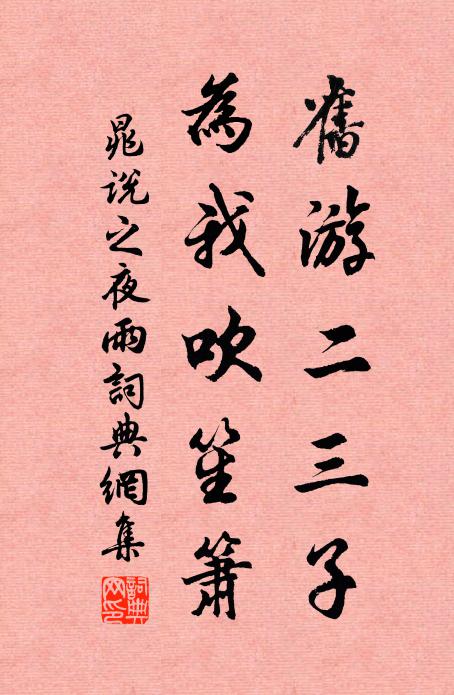 舊游二三子
為我吹笙簫
晁說之夜雨詞典網集
詞典网印